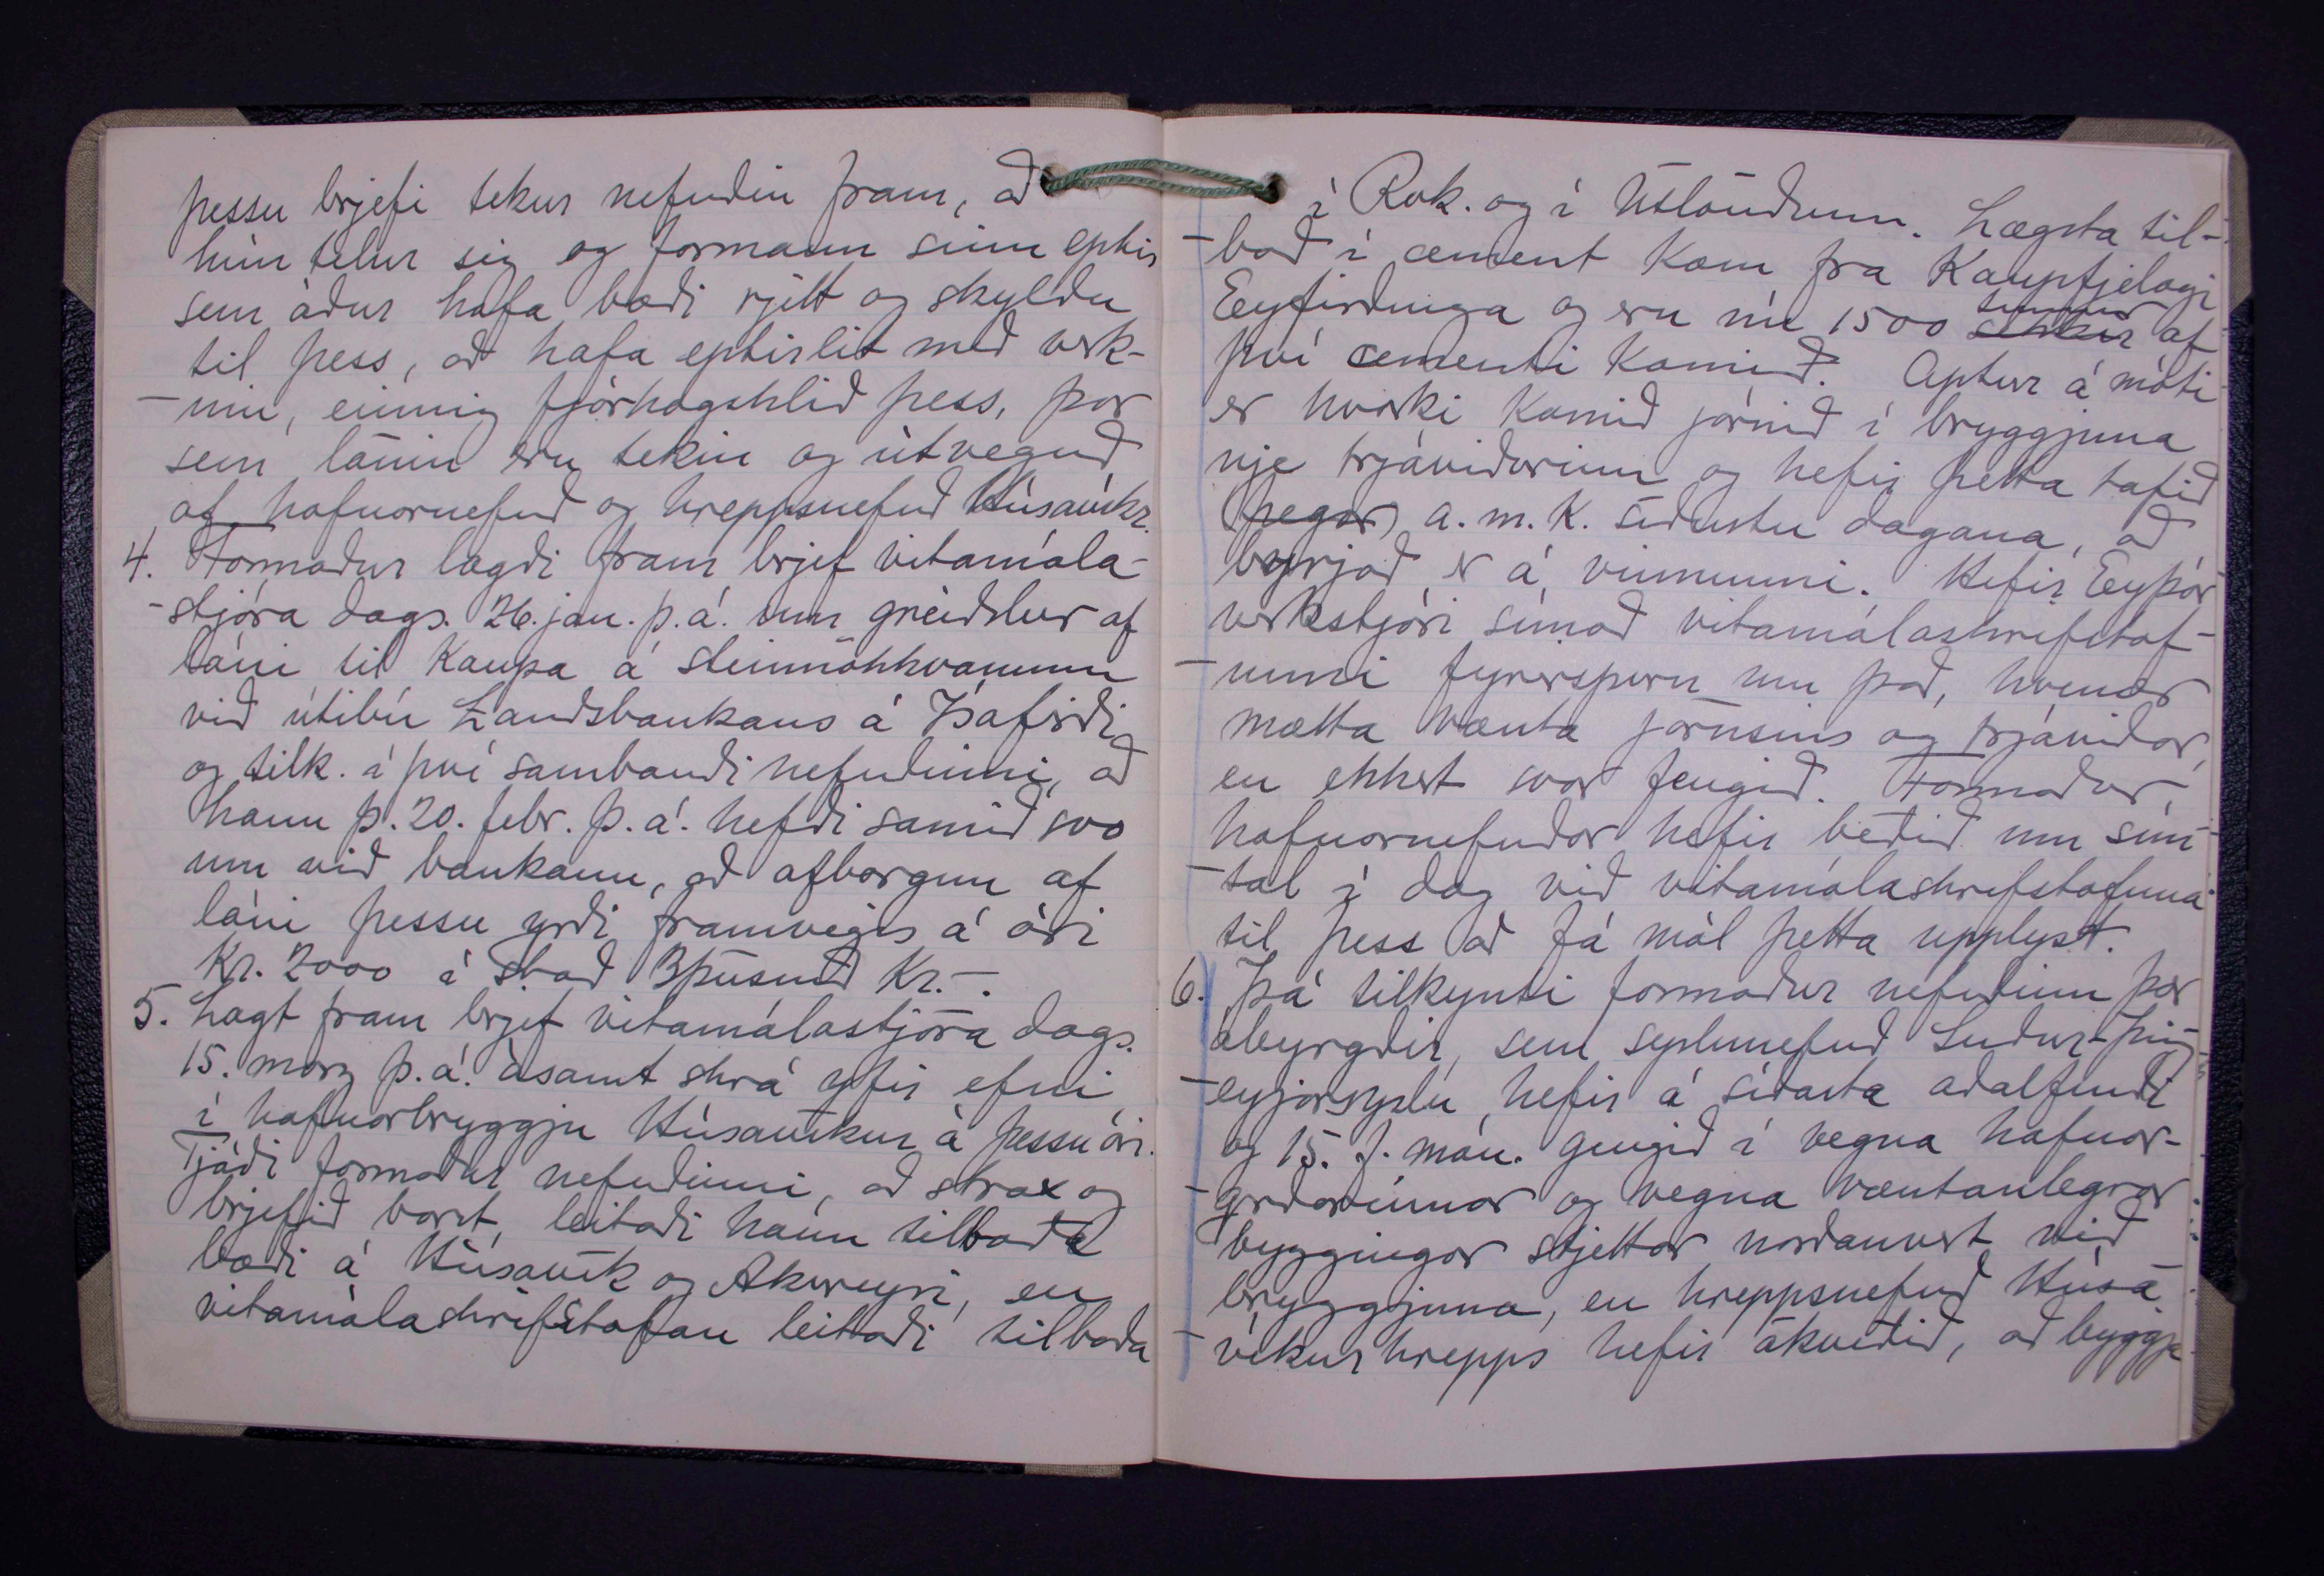 þessu brjefi tekur nefndin fram, að
hún telur sig og formann sinn eptir
sem áður hafa bæði rjett og skyldu
til þess, að hafa eptirlit með verk-
-inu, einnig fjárhagshlið þess, þar
sem lánin eru tekin og útveguð
af hafnarnefnd og hreppsnefnd Húsavíkr.
4. Formaður lagði fram brjef vitamála-
-stjóra dags. 26. jan. þ.á. um greiðslur af
láni til kaupa á steinnökkvanum
við útibú Landsbankans á Ísafirði
og tilk. í því sambandi nefndinni, að
hann þ. 20. febr. þ.á. hefði samið svo
um við bankann, að afborgun af
láni þessu yrði framvegis á ári
Kr. 2000 í stað 3þúsund Kr.-.
5. Lagt fram brjef vitamálastjóra dags.
15. marz þ.á. ásamt skrá yfir efni
í hafnarbryggju Húsavíkur á þessu ári.
Tjáði formaður nefndinni, að strax og
brjefið barst, leitaði hann tilboða
bæði á Húsavík og Akureyri, en
vitamálaskrifstofan leitaði tilboða
í Rvk. og í Útlöndum. Lægsta til-
-boð í cement kom frá Kaupfjelagi
Eyfirðinga og eru nú 1500 tunnur af
því cementi komið. Aptur á móti
er hvorki komið járnið í bryggjuna
nje trjáviðurinn og hefir þetta tafið
(þegar) a.m.k. síðustu dagana, að
byrjað er á vinnunni. Hefir Eyþór
verkstjóri símað vitamálaskrifstof-
-unni fyrirspurn um það, hvenær
mætta vænta járnsins og trjáviðar,
en ekkert svar fengið. Formaður
hafnarnefndar hefir beðið um sím-
-tal í dag við vitamálaskrifstofuna
til þess að fá mál þetta upplýst.
6. Þá tilkynti formaður nefndinni þær
ábyrgðir, sem sýslunefnd Suður-þing-
-eyjarsýslu hefir á síðasta aðalfundi
og 15. f. mán. gengið í vegna hafnar-
-gerðarinnar og vegna væntanlegrar
byggingar stjettar norðanvert við
bryggjuna, en hreppsnefnd Húsa-
-víkurhrepps hefir ákveðið, að byggja